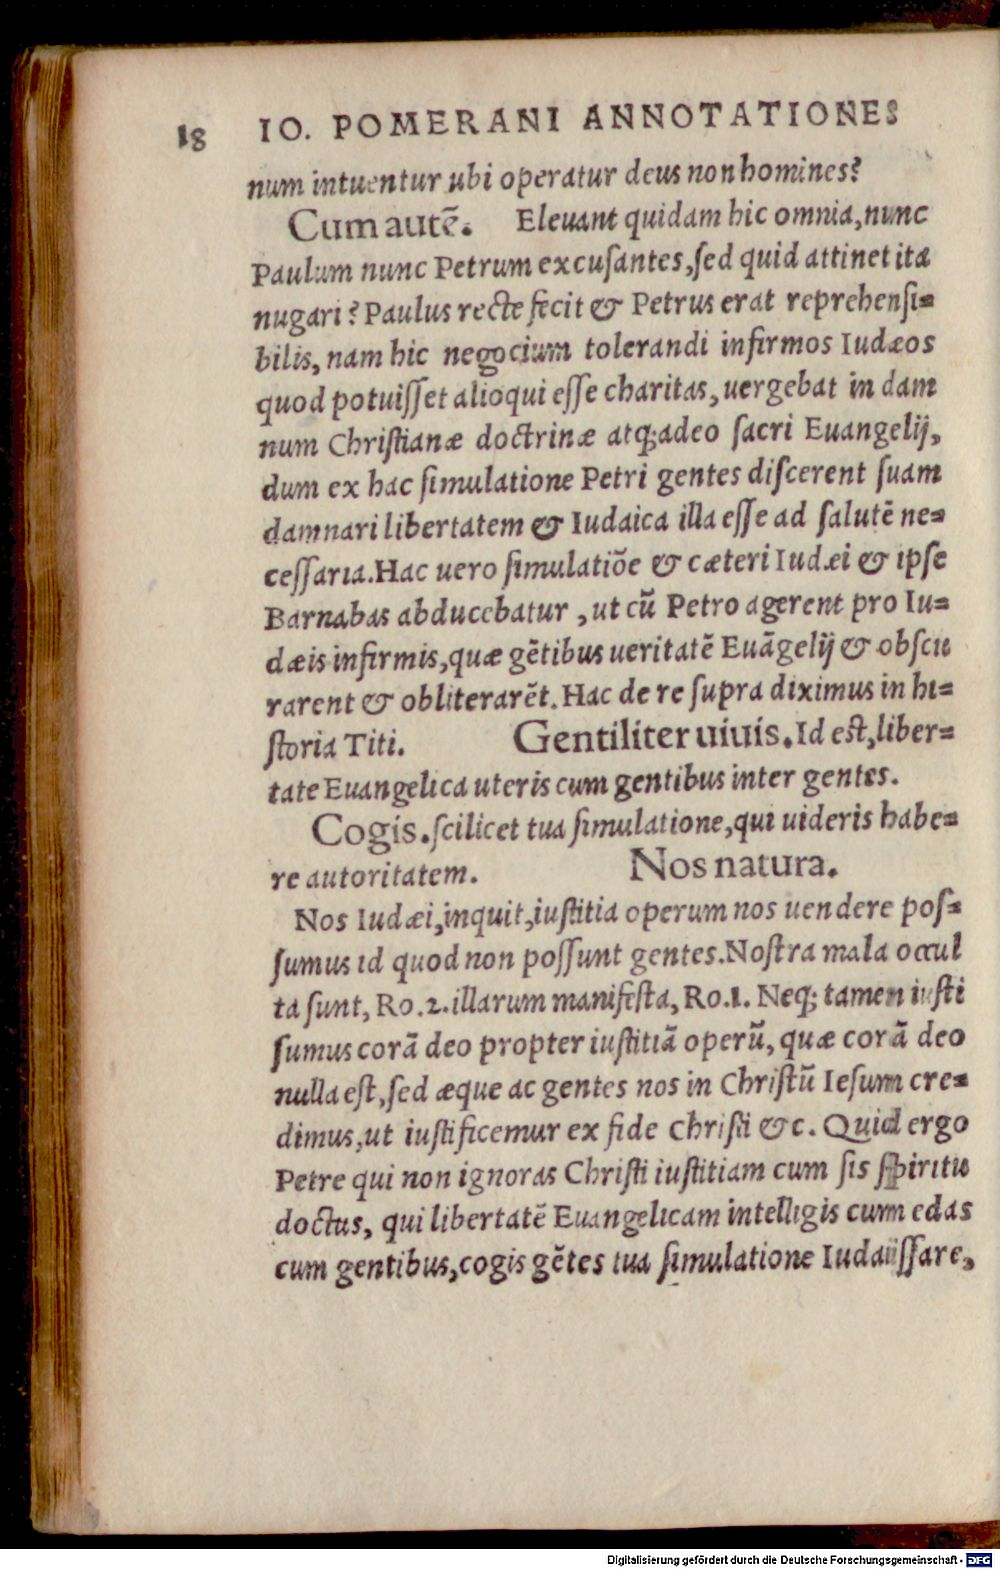 18 IO. POMERANI ANNOTATIONES
num intuentur ubi operatur deus non homines?
Cum autē. Eleuant quidam hic omnia, nunc
Paulum nunc Petrum excuſantes, ſed quid attinet ita
nugari? Paulus recte fecit & Petrus erat reprehenſi=
bilis, nam hic negocium tolerandi infirmos Iudæos
quod potuiſſet alioqui eſſe charitas, uergebat in dam
num Chriſtianæ doctrinæ atq; adeo ſacri Euangelij,
dum ex hac ſimulatione Petri gentes diſcerent ſuam
damnari libertatem & Iudaica illa eſſe ad ſalutē ne=
ceſſaria. Hac uero ſimulatiōe & cæteri Iudæi & ipſe
Barnabas abducebatur, ut cū Petro agerent pro Iu=
dæis infirmis, quæ gētibus ueritatē Euāgelij & obſcu
rarent & obliterarēt. Hac de re ſupra diximus in hi=
ſtoria Titi. Gentiliter uiuis. Id eſt, liber=
tate Euangelica uteris cum gentibus inter gentes.
Cogis. ſcilicet tua ſimulatione, qui uideris habe=
re autoritatem. Nos natura.
Nos Iudæi, inquit, iuſtitia operum nos uendere poſ=
ſumus id quod non poſſunt gentes. Noſtra mala occul
ta ſunt, Ro. 2. illarum manifeſta, Ro. 1. Neq; tamen iuſti
ſumus corā deo propter iuſtitiā operū, quæ corā deo
nulla eſt, ſed æque ac gentes nos in Chriſtū Ieſum cre=
dimus, ut iuſtificemur ex fide Chriſti &c. Quid ergo
Petre qui non ignoras Chriſti iuſtitiam cum ſis ſpiritu
doctus, qui libertatē Euangelicam intelligis cum edas
cum gentibus, cogis gētes tua ſimulatione Iudaiſſare,
Digitalisierung gefördert durch die Deutsche Forschungsgemeinschaft - DFG